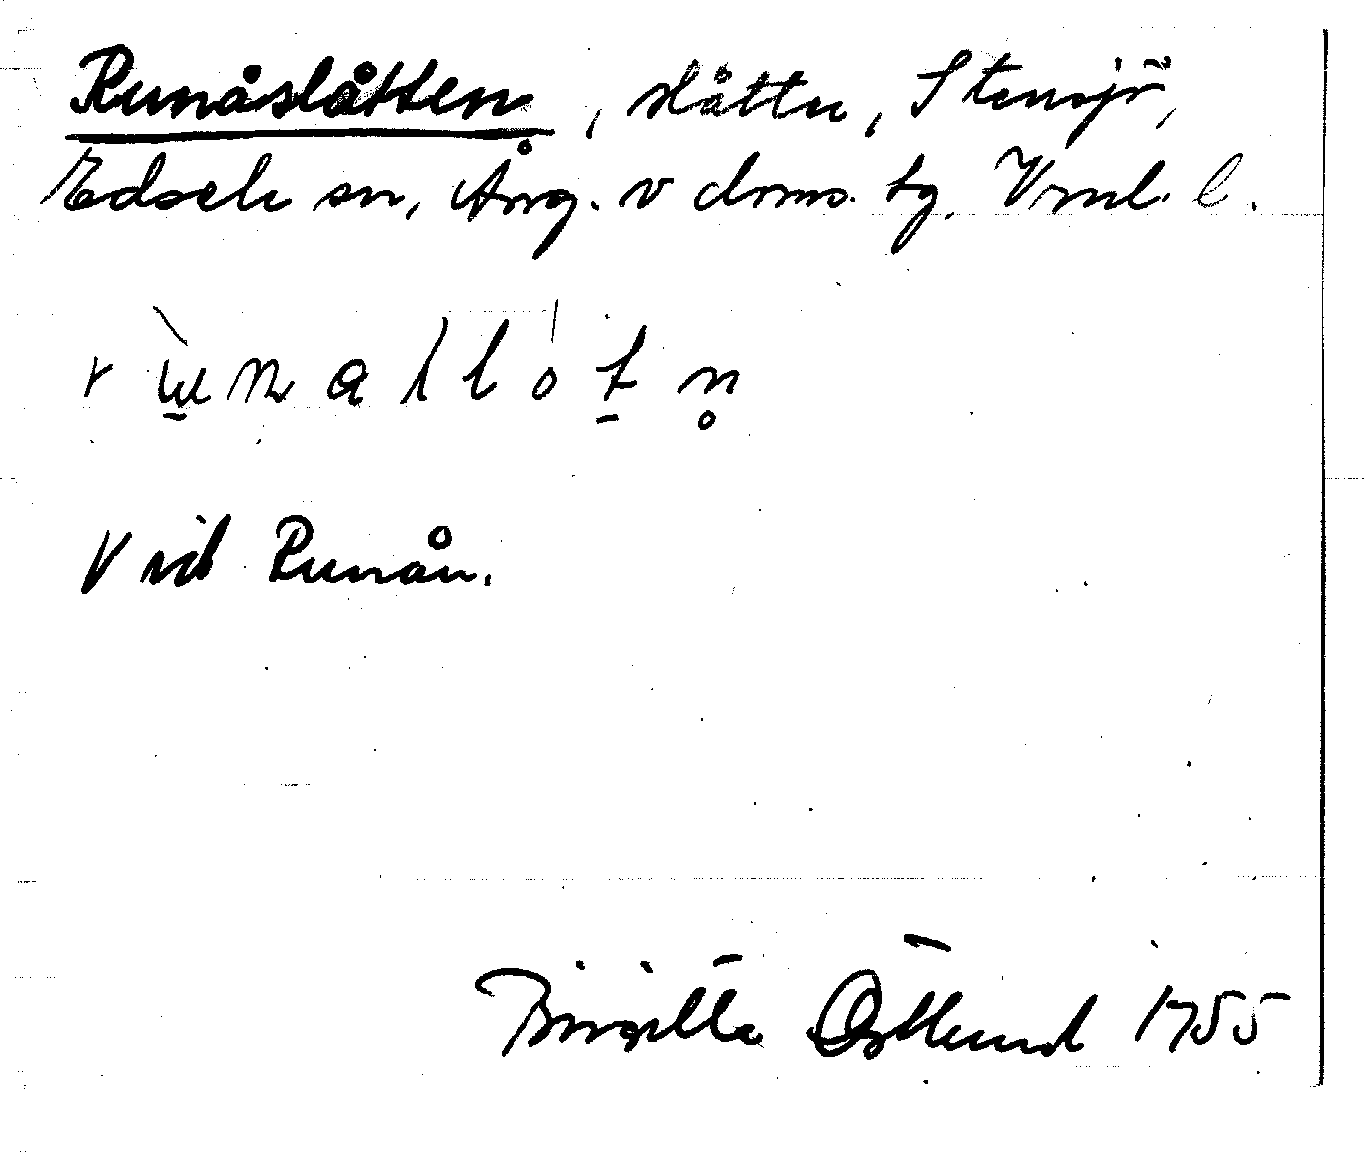 Runåslåtten, slåtter, Stensjö,
Edsele sn, Ång. v doms. tg. Vnl. l.
Vid Runån.
Birgitta Östlund 1955